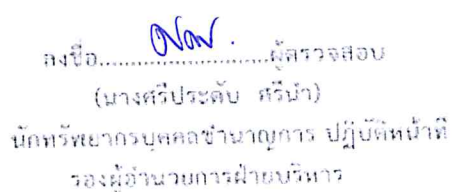 ลงชื่อ.........................ผู้ตรวจสอบ
(นางศรีประดับ ศรีนำ)
นักทรัพยากรบุคคลชำนาญการ ปฏิบัติหน้าที่
รองผู้อำนวยการฝ่ายบริหาร